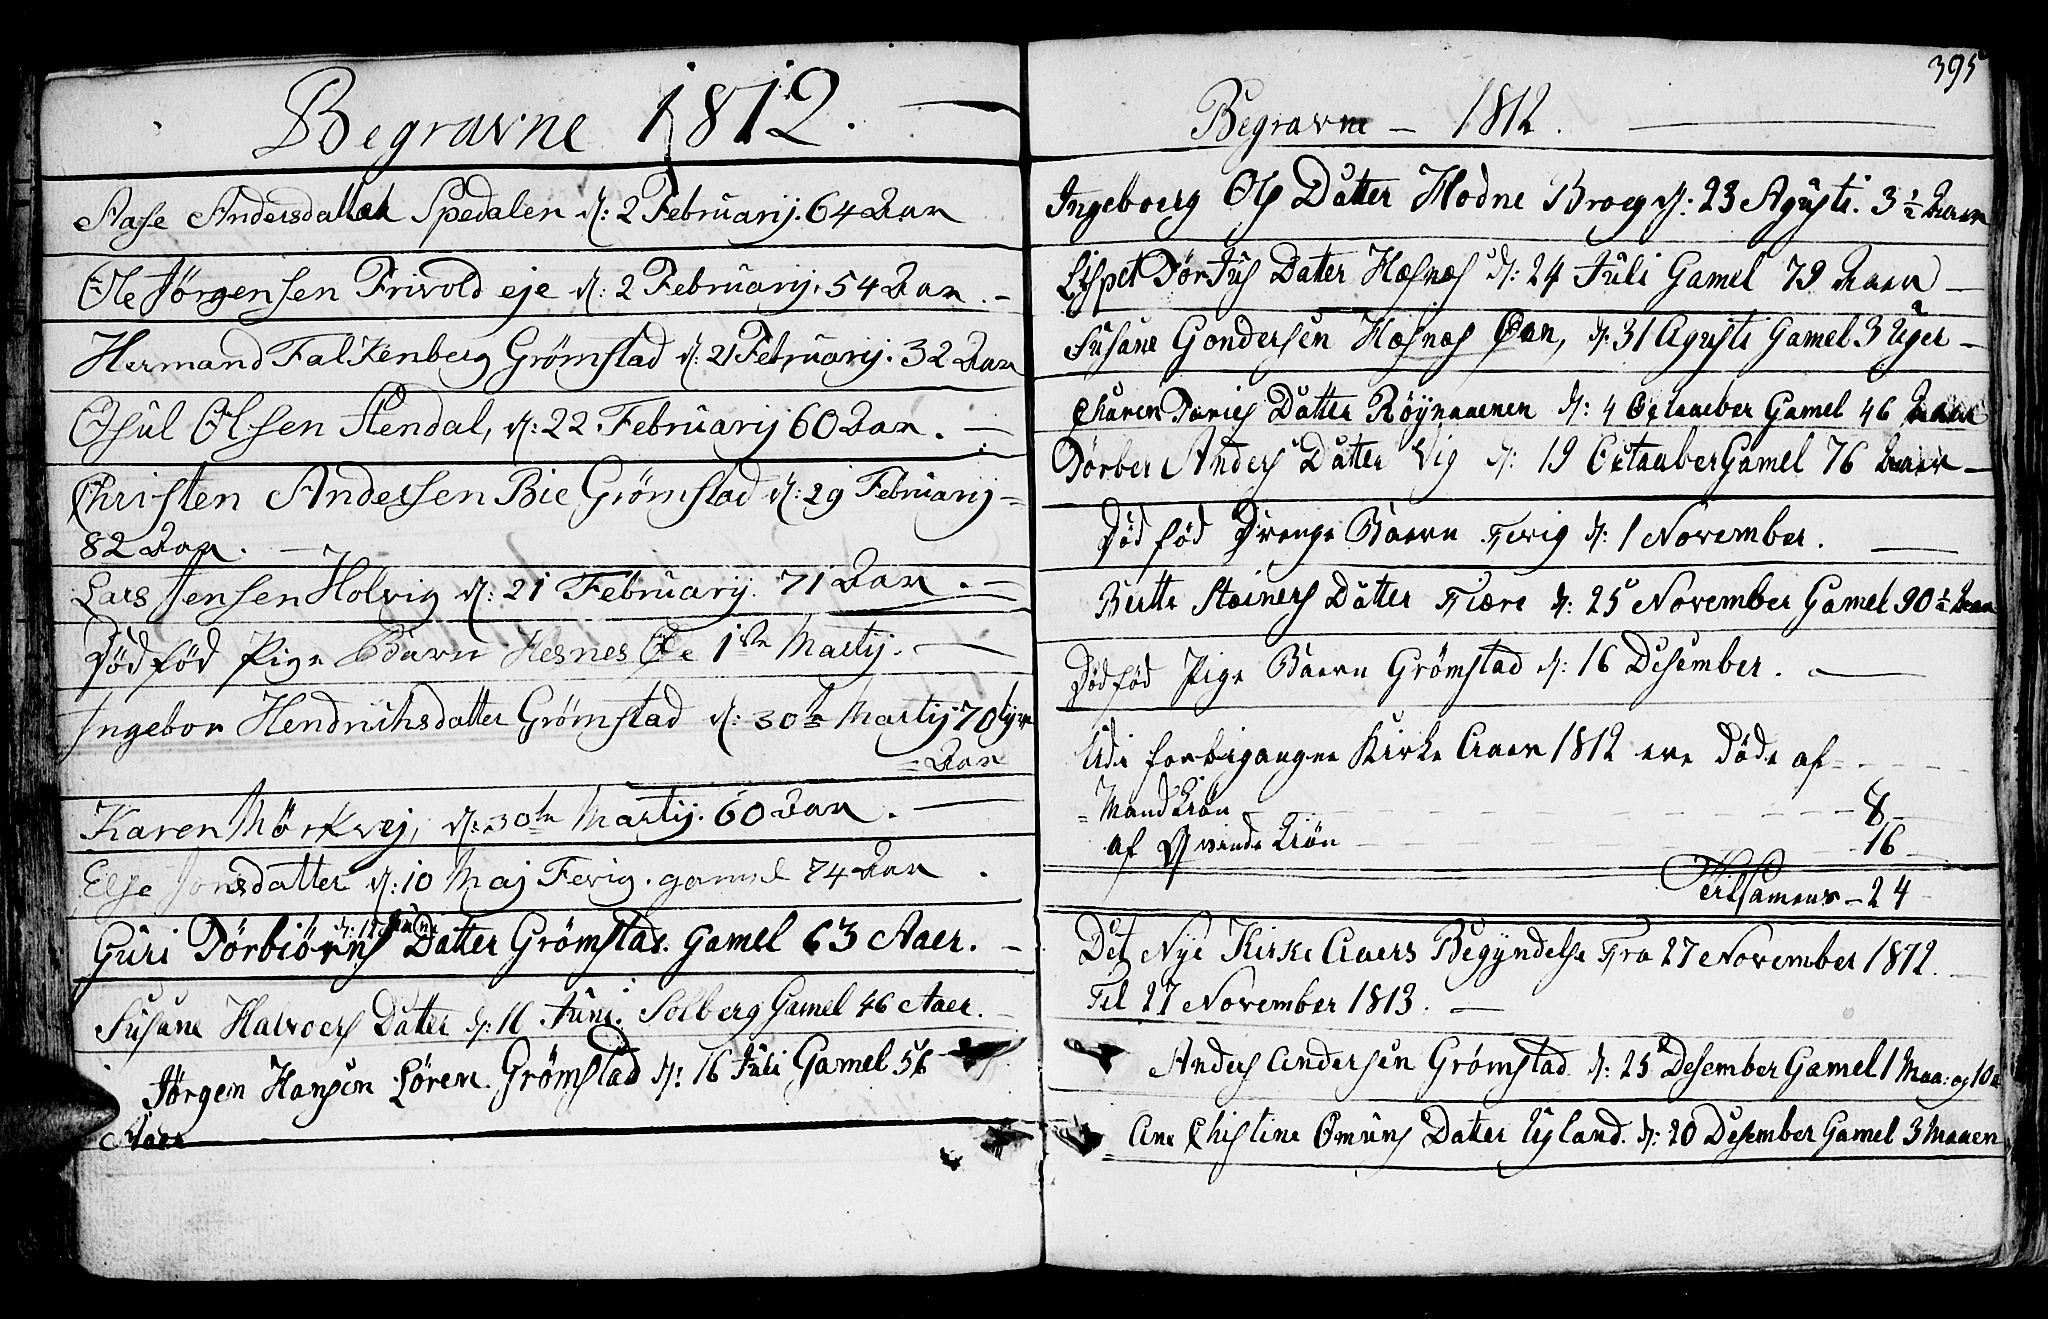 Begravne 1812.
Aase Andersdatter Spedalen d: 2 Februarij. 64 Aar
Ole Jørgensen Frivold eje d: 2 Februarij. 54 Aar. -
Hermand Falkenberg Grømstad d: 21 Februarij. 32 Aar
Osul Olsen Stendal, d: 22 Februarij 60 Aar. -
Christen Andersen Bie Grømstad d: 29 Februarij =
82 Aar. -
Lars Jensen Holvig d: 21 Februarij. 71 Aar. -
Død fød Pige Barn Hesnes Øe 1ste Martij. -
Ingebor Hendrichsdatter Grømstad d: 30te Martij 70tyve
= Aar
Karen Mørkvej, d: 30te Martij. 60 Aar. -
Else Jonsdatter d: 10 Maj Fevig. gamel 74 Aar.
d: 12 Juni
Guri Dørbiørns Datter Grømstad. Gamel 63 Aaer. -
Susane Halvoers Datter d: 11 Juni. Solberg Gamel 46 Aaer. -
Jørgen Hansen Løren. Grømstad d: 16 Juli Gamel 56
Aaer
395
Begravne - 1812.
Ingeboerg Ols Datter Hodne Broeg d: 23 Agusti. 3 1/2 Aaer
Lispet Dørjus Datter Hæsnæs d: 24 Juli Gamel 79 Aaer -
Susane Gondersen Hæsnæs Øen, d: 31 Agusti Gamel 3 Uger -
Charen Daries Datter Røynaaenen d: 4 Octaaeber Gamel 46 Aaer
Dørber Anders Datter Vig d: 19 Octauber Gamel 76 Aaer -
Død fød Drenge Baern Fevig d: 1 November. -
Berthe Steiners Datter Fiære d: 25 November Gamel 90 1/2 Aaer
Død fød Pige Baern Grømstad d: 16 Desember. -
Udi forbigangne Kirke Aaer 1812 ere Døde af -
= Mandkiøn - 8 -
af Qvinde Kiøn - 16 -
Tilsamens - 24
Det Nye Kirke Aaers Begyndelse Fra 27 November 1812. -
Til 27 November 1813. -
Anders Andersen Grømstad d: 25 Desember Gamel 1 Maa: og 10
Ane Christine Omuns Datter Ugland. d: 20 Desember Gamel 3 Maaen